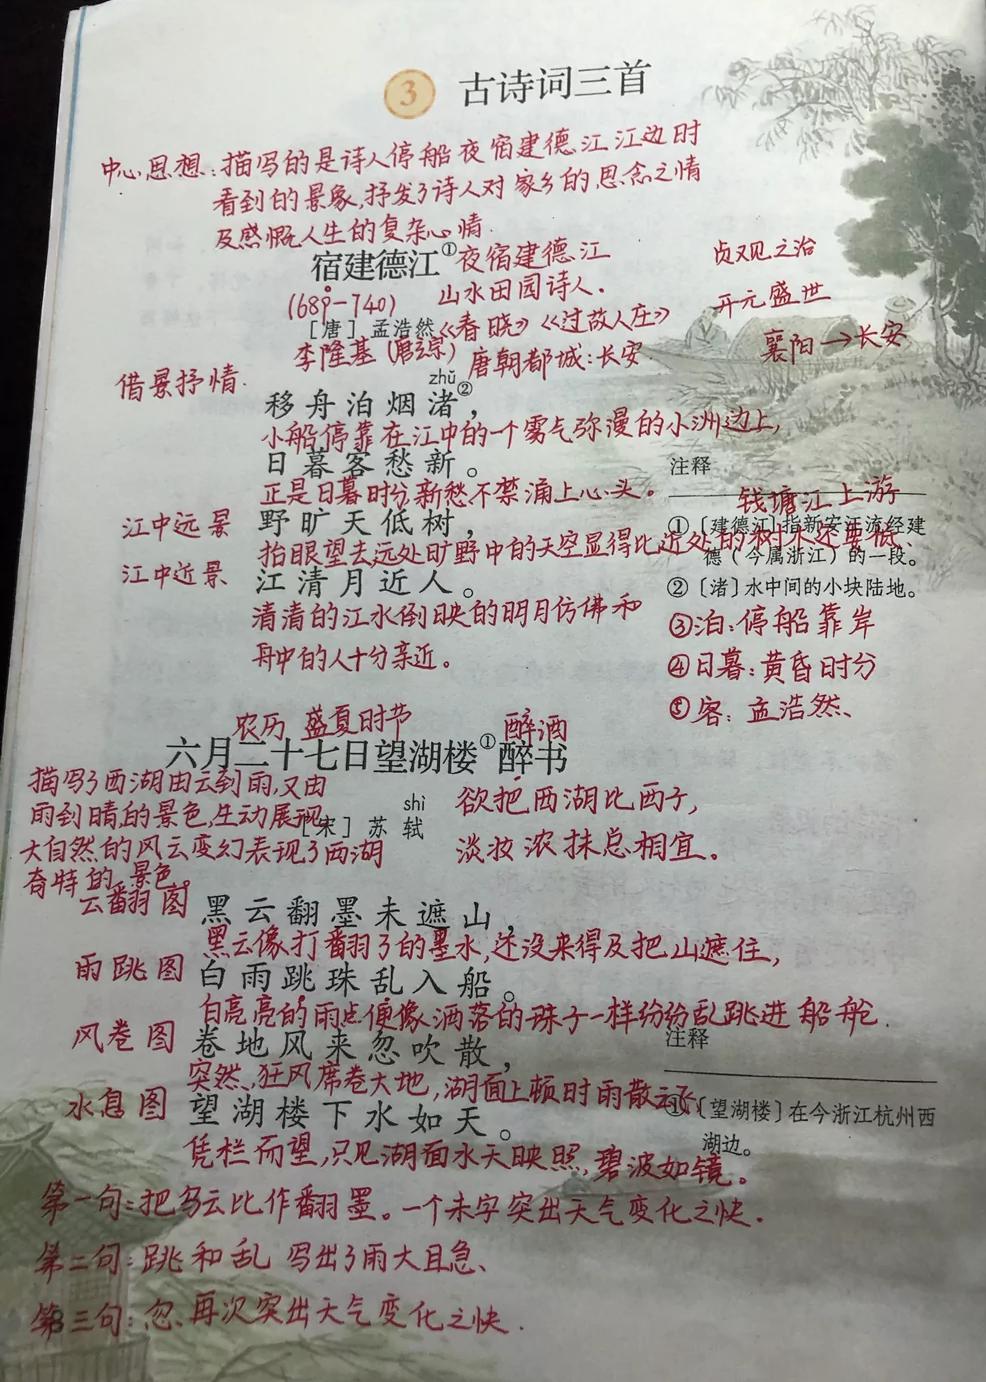 3 古诗词三首
中心思想:描写的是诗人停船夜宿建德江江边时
看到的景象,抒发了诗人对家乡的思念之情
及感慨人生的复杂心情.
宿建德江①夜宿建德江
贞观之治
(689-740) 山水田园诗人.
开元盛世
[唐] 孟浩然《春晓》《过故人庄》
襄阳→长安
李隆基(唐玄宗) 唐朝都城:长安
借景抒情.
zhǔ
移舟泊烟渚②,
小船停靠在江中的一个雾气弥漫的小洲边上,
日暮客愁新。
正是日暮时分新愁不禁涌上心头。
江中远景 野旷天低树,
抬眼望去远处旷野中的天空显得比近处的树木还要低、
江中近景 江清月近人。
清清的江水倒映的明月仿佛和
舟中的人十分亲近。
注释
钱塘江上游
①〔建德江〕指新安江流经建
德(今属浙江)的一段。
②〔渚〕水中间的小块陆地。
③泊:停船靠岸
④日暮:黄昏时分
⑤客:孟浩然、
农历 盛夏时节 醉酒
六月二十七日望湖楼①醉书
描写了西湖由云到雨,又由
雨到晴的景色,生动展现
大自然的风云变幻表现了西湖
奇特的景色。
shì
[宋] 苏轼
欲把西湖比西子,
淡妆浓抹总相宜。
云翻图 黑云翻墨未遮山,
黑云像打翻了的墨水,还没来得及把山遮住,
雨跳图 白雨跳珠乱入船。
白亮亮的雨点便像洒落的珠子一样纷纷乱跳进船舱.
风卷图 卷地风来忽吹散,
突然,狂风席卷大地,湖面上顿时雨散云飞
水息图 望湖楼下水如天。
凭栏而望,只见湖面水天映照,碧波如镜。
注释
①〔望湖楼〕在今浙江杭州西
湖边。
第一句:把乌云比作翻墨。一个未字突出天气变化之快.
第二句:跳和乱 写出了雨大且急、
第三句:忽、再次突出天气变化之快.